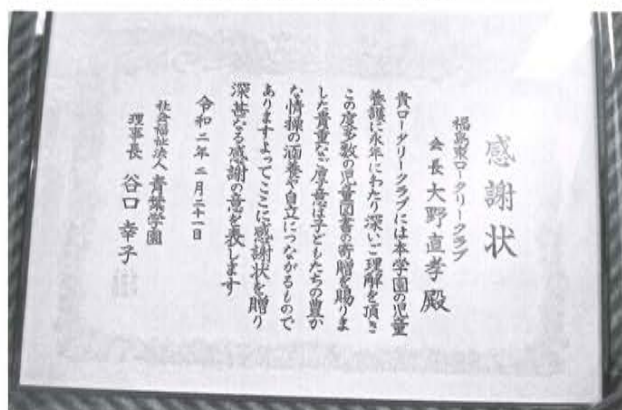 感謝状
福島東ロータリークラブ
会長 大野直孝 殿
貴ロータリークラブには本学園の児童
養護に永年にわたり深いご理解を頂き
この度多数の児童図書の寄贈を賜りま
した貴重なご厚意は子どもたちの豊か
な情操の涵養や自立につながるもので
ありますよってここに感謝状を贈り
深甚なる感謝の意を表します
令和二年二月二十一日
社会福祉法人 青葉学園
理事長 谷口 幸子